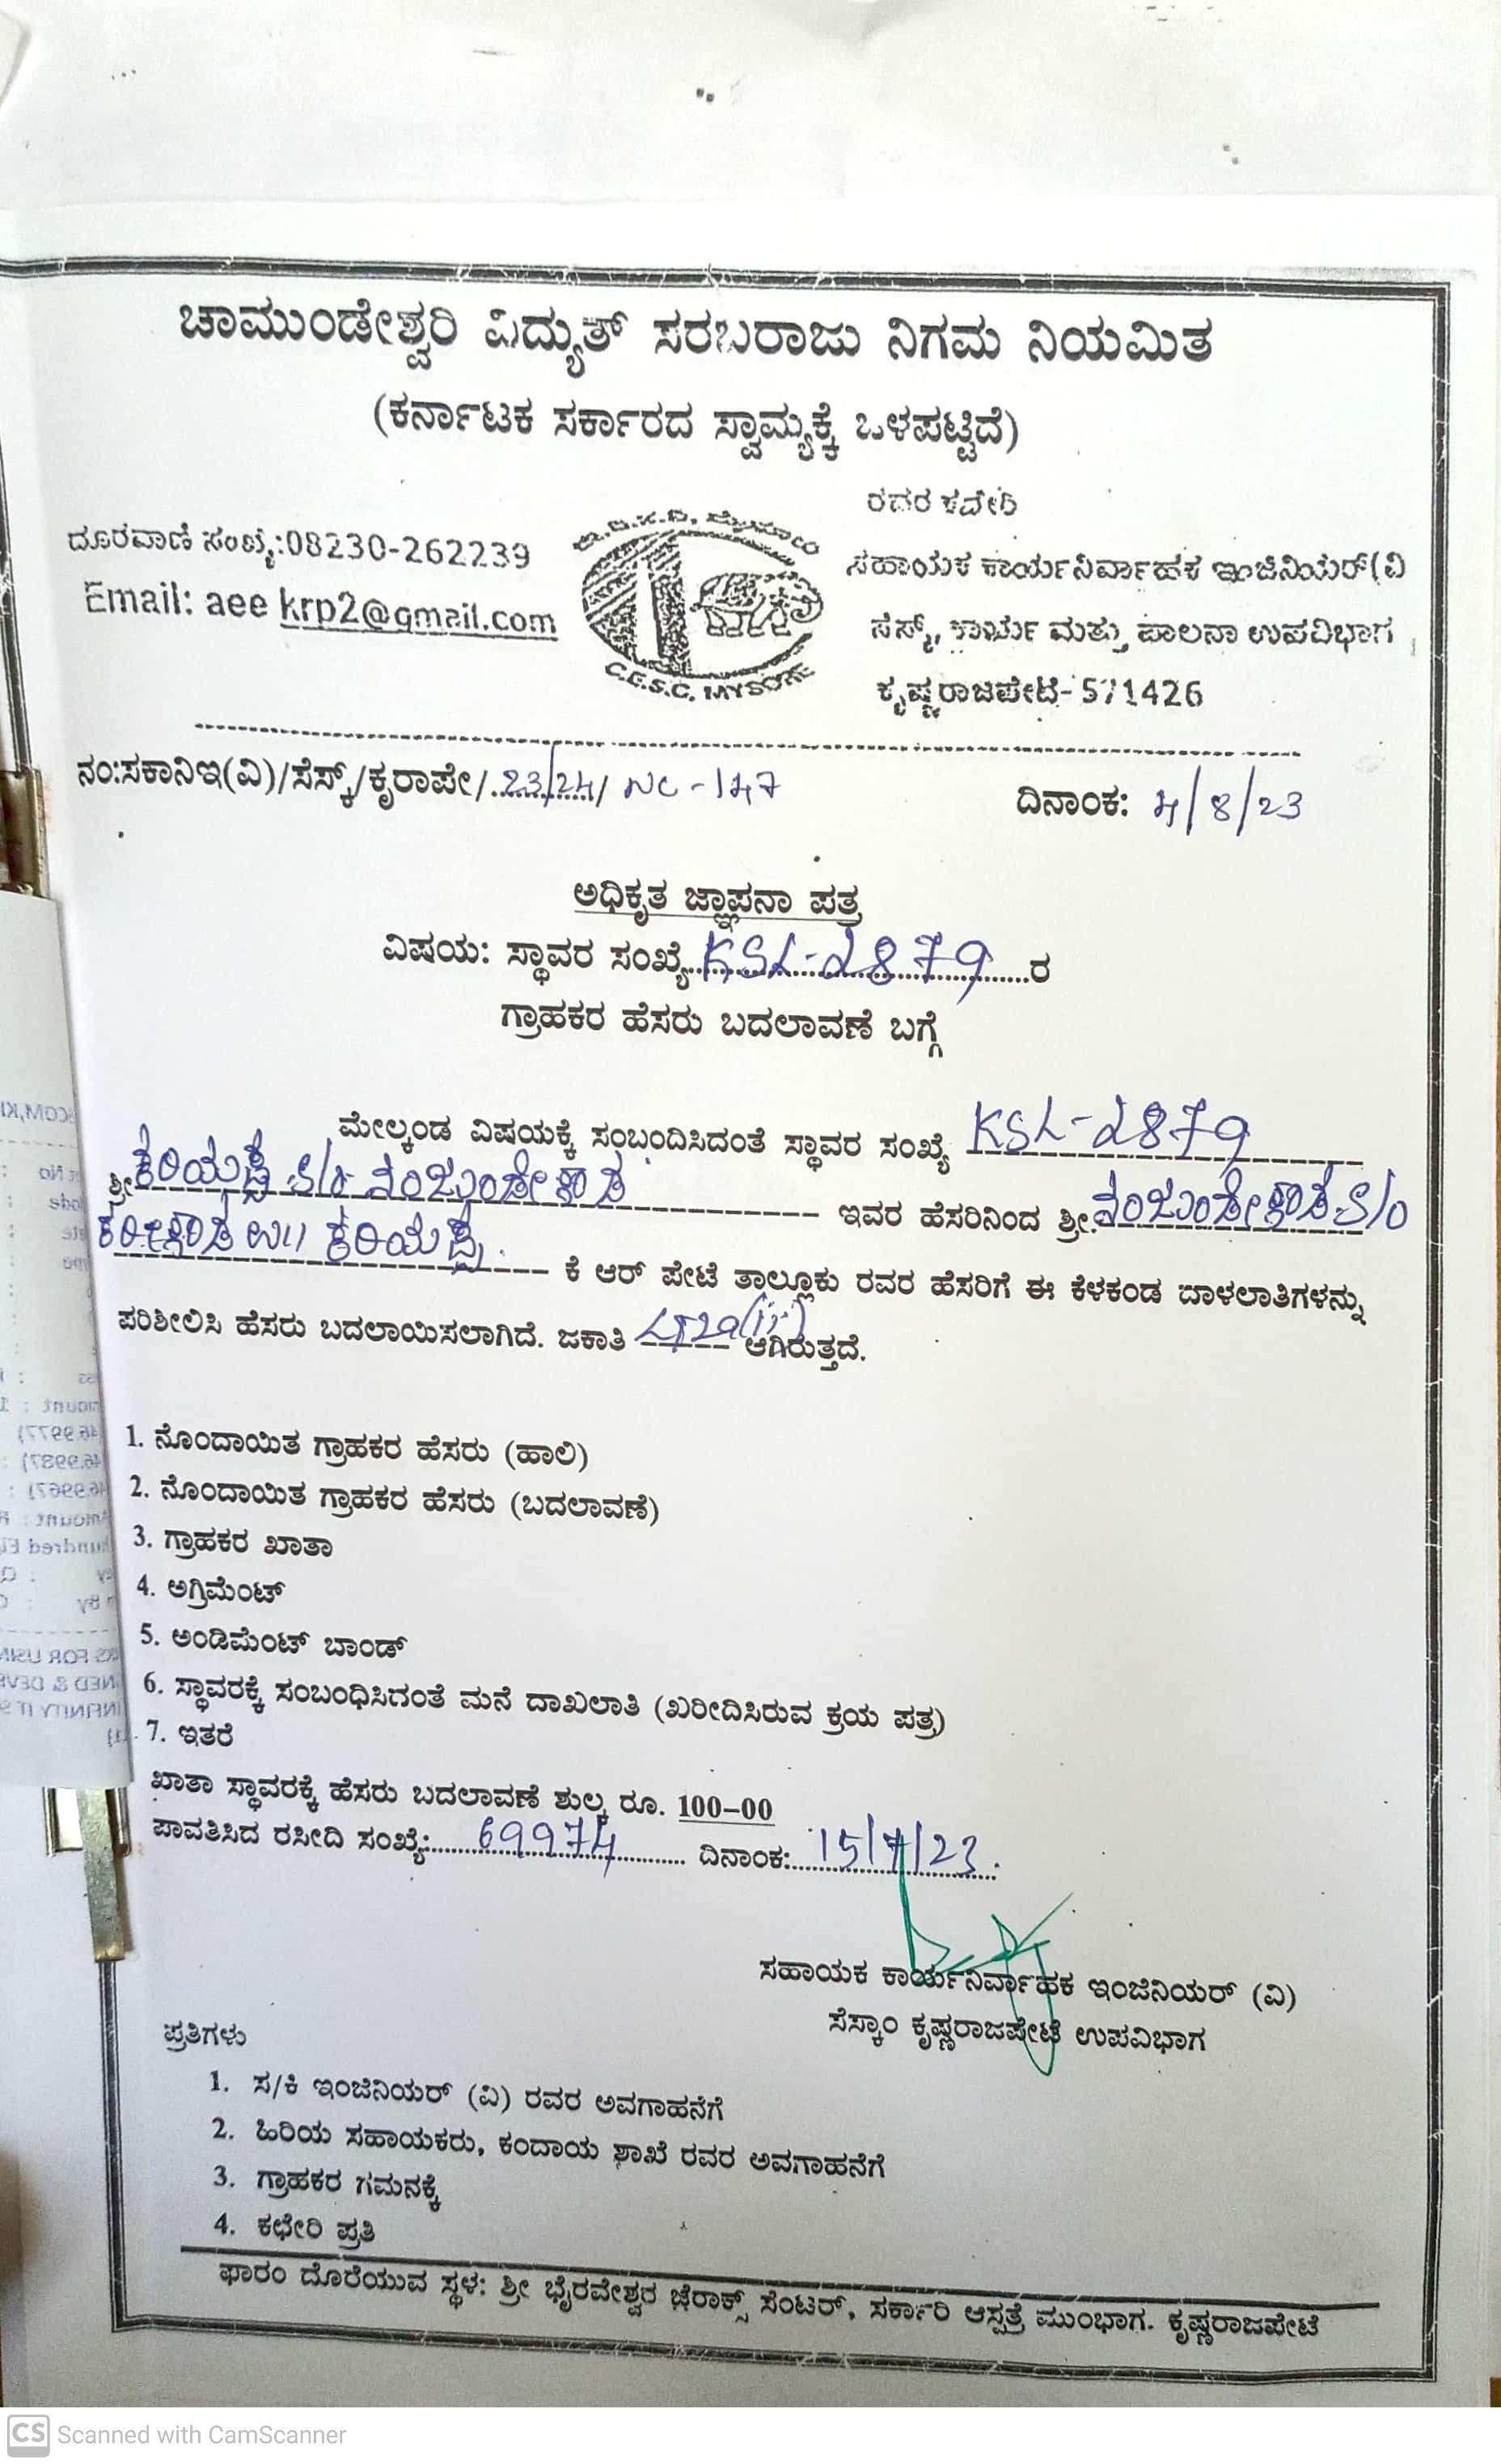 ಚಾಮುಂಡೇಶ್ವರಿ ವಿದ್ಯುತ್ ಸರಬರಾಜು ನಿಗಮ ನಿಯಮಿತ
(ಕರ್ನಾಟಕ ಸರ್ಕಾರದ ಸ್ವಾಮ್ಯಕ್ಕೆ ಒಳಪಟ್ಟಿದೆ)
ದೂರವಾಣಿ ಸಂಖ್ಯೆ:08230-262239
Email: aee krp2@gmail.com
C.E.S.C. MYSORE
ರವರ ಕಚೇರಿ
ಸಹಾಯಕ ಕಾರ್ಯನಿರ್ವಾಹಕ ಇಂಜಿನಿಯರ್(ವಿ
ಸೆಸ್ಕ್, ಕಾರ್ಯ ಮತ್ತು ಪಾಲನಾ ಉಪವಿಭಾಗ
ಕೃಷ್ಣರಾಜಪೇಟೆ-571426
ನಂ:ಸಕಾನಿಇ(ವಿ)/ಸೆಸ್ಕ್/ಕೃರಾಪೇ/.23/24/ NC-147
ದಿನಾಂಕ: 4/8/23
ಅಧಿಕೃತ ಜ್ಞಾಪನಾ ಪತ್ರ
ವಿಷಯ: ಸ್ಥಾವರ ಸಂಖ್ಯೆ KSL-2879 ರ
ಗ್ರಾಹಕರ ಹೆಸರು ಬದಲಾವಣೆ ಬಗ್ಗೆ
ಮೇಲ್ಕಂಡ ವಿಷಯಕ್ಕೆ ಸಂಬಂದಿಸಿದಂತೆ ಸ್ಥಾವರ ಸಂಖ್ಯೆ KSL-2879
ಶ್ರೀ ಕರಿಯಪ್ಪ S/o ನಂಜುಂಡೇಗೌಡ ಇವರ ಹೆಸರಿನಿಂದ ಶ್ರೀ ನಂಜುಂಡೇಗೌಡ S/o
ಕರೀಗೌಡ ಉ॥ ಕರಿಯಪ್ಪ ಕೆ ಆರ್ ಪೇಟೆ ತಾಲ್ಲೂಕು ರವರ ಹೆಸರಿಗೆ ಈ ಕೆಳಕಂಡ ದಾಳಲಾತಿಗಳನ್ನು
ಪರಿಶೀಲಿಸಿ ಹೆಸರು ಬದಲಾಯಿಸಲಾಗಿದೆ. ಜಕಾತಿ LT2a(ii) ಆಗಿರುತ್ತದೆ.
1. ನೊಂದಾಯಿತ ಗ್ರಾಹಕರ ಹೆಸರು (ಹಾಲಿ)
2. ನೊಂದಾಯಿತ ಗ್ರಾಹಕರ ಹೆಸರು (ಬದಲಾವಣೆ)
3. ಗ್ರಾಹಕರ ಖಾತಾ
4. ಅಗ್ರಿಮೆಂಟ್
5. ಅಂಡಿಮೆಂಟ್ ಬಾಂಡ್
6. ಸ್ಥಾವರಕ್ಕೆ ಸಂಬಂಧಿಸಿದಂತೆ ಮನೆ ದಾಖಲಾತಿ (ಖರೀದಿಸಿರುವ ಕ್ರಯ ಪತ್ರ)
7. ಇತರೆ
ಖಾತಾ ಸ್ಥಾವರಕ್ಕೆ ಹೆಸರು ಬದಲಾವಣೆ ಶುಲ್ಕ ರೂ. 100-00
ಪಾವತಿಸಿದ ರಸೀದಿ ಸಂಖ್ಯೆ: 69974 ದಿನಾಂಕ: 15/7/23.
ಸಹಾಯಕ ಕಾರ್ಯನಿರ್ವಾಹಕ ಇಂಜಿನಿಯರ್ (ವಿ)
ಸೆಸ್ಕಾಂ ಕೃಷ್ಣರಾಜಪೇಟೆ ಉಪವಿಭಾಗ
ಪ್ರತಿಗಳು
1. ಸ/ಕಿ ಇಂಜಿನಿಯರ್ (ವಿ) ರವರ ಅವಗಾಹನೆಗೆ
2. ಹಿರಿಯ ಸಹಾಯಕರು, ಕಂದಾಯ ಶಾಖೆ ರವರ ಅವಗಾಹನೆಗೆ
3. ಗ್ರಾಹಕರ ಗಮನಕ್ಕೆ
4. ಕಛೇರಿ ಪ್ರತಿ
ಫಾರಂ ದೊರೆಯುವ ಸ್ಥಳ: ಶ್ರೀ ಭೈರವೇಶ್ವರ ಜೆರಾಕ್ಸ್ ಸೆಂಟರ್, ಸರ್ಕಾರಿ ಆಸ್ಪತ್ರೆ ಮುಂಭಾಗ. ಕೃಷ್ಣರಾಜಪೇಟೆ
CS Scanned with CamScanner